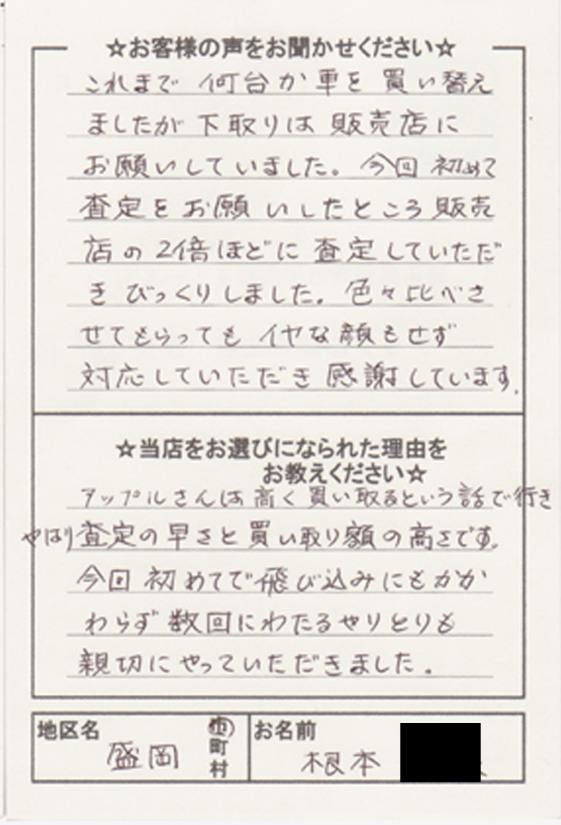 ☆お客様の声をお聞かせください☆
これまで 何台か車を買い替え
ましたが下取りは 販売店に
お願いしていました。今回 初めて
査定をお願いしたところ 販売
店の2倍ほどに 査定していただ
きびっくりしました。色々比べさ
せてもらっても イヤな顔もせず
対応していただき 感謝しています。
☆当店をお選びになられた理由を
お教えください☆
アップルさんは高く買い取るという話で行き
やはり査定の早さと買い取り額の高さです。
今回初めてで飛び込みにもかか
わらず 数回にわたるやりとりも
親切にやっていただきました。
地区名 盛岡 市町村 お名前 根本